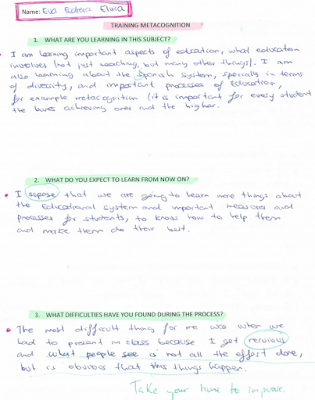 Name: Eva
TRAINING METACOGNITION
1. WHAT ARE YOU LEARNING IN THIS SUBJECT?
I am learning important aspects of education, what education
involves (not just teaching, but many other things). I am
also learning about the Spanish System, specially in terms
of diversity, and important processes of Education,
for example metacognition (it is important for every student
the ones achieving ones and the higher.
2. WHAT DO YOU EXPECT TO LEARN FROM NOW ON?
I supose that we are going to learn more things about
the Educational System and important measures and
processes for students, to know how to help them
and make them do their best.
3. WHAT DIFFICULTIES HAVE YOU FOUND DURING THE PROCESS?
The most difficult thing for me was when we
had to present in class because I get nervious
and what people see is not all the effort done,
but is obvious that this things happen.
Take your time to improve.